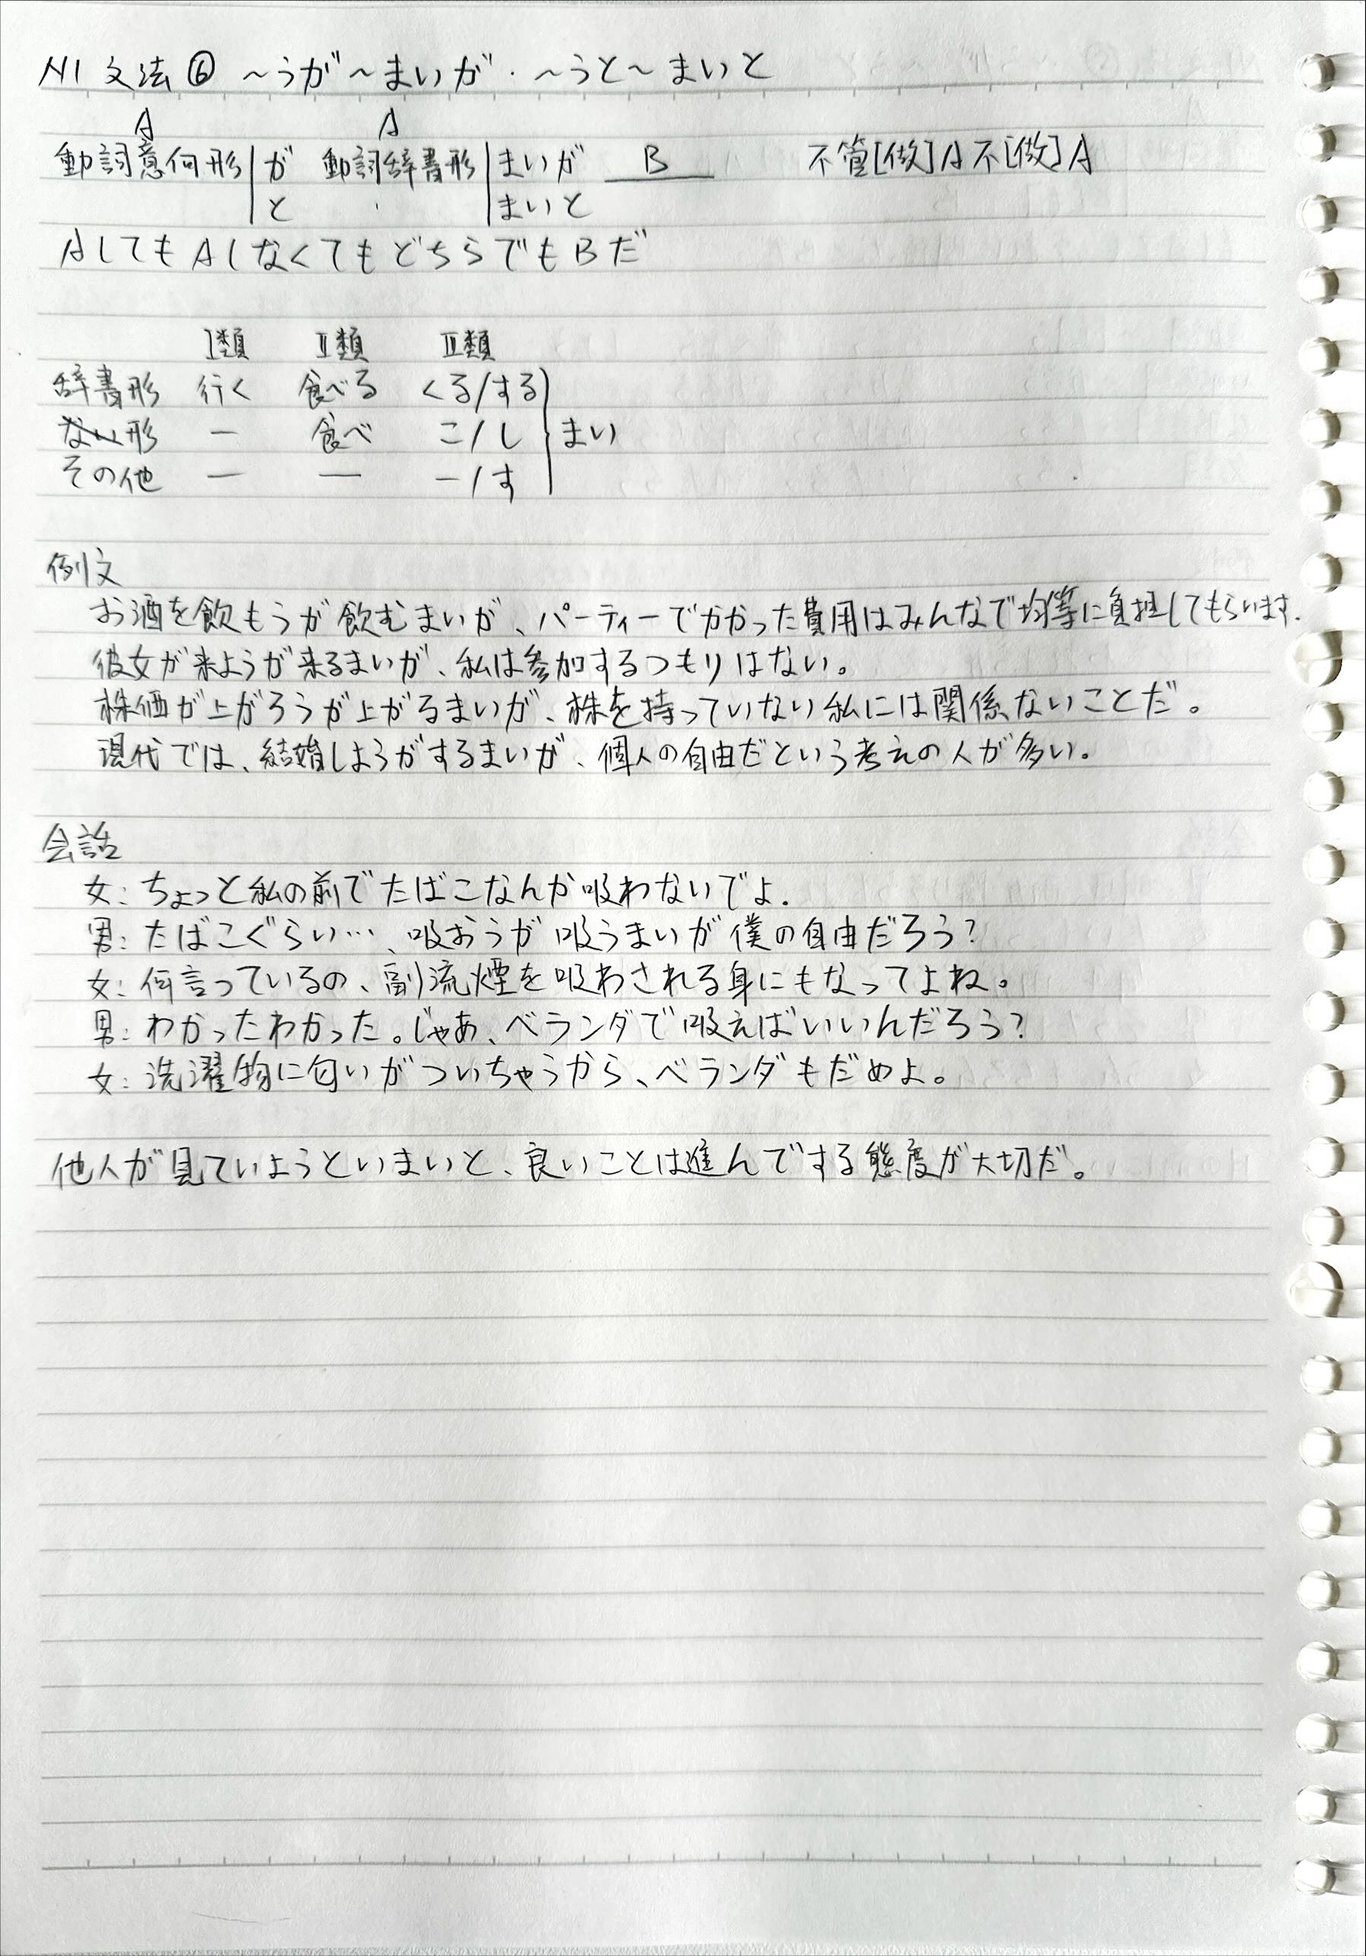 N1 文法⑥ ～うが～まいが・～うと～まいと
A A
動詞意向形 が 動詞辞書形 まいが B 不管[做]A不[做]A
と まいと
AしてもAしなくてもどちらでもBだ
I類 II類 III類
辞書形 行く 食べる くる/する
ない形 ー 食べ こ/し まい
その他 ー ー ー/す
例文
お酒を飲もうが飲むまいが、パーティーでかかった費用はみんなで均等に負担してもらいます.
彼女が来ようが来るまいが、私は参加するつもりはない。
株価が上がろうが上がるまいが、株を持っていない私には関係ないことだ。
現代では、結婚しようがするまいが、個人の自由だという考えの人が多い。
会話
女:ちょっと私の前でたばこなんか吸わないでよ.
男:たばこぐらい…、吸おうが吸うまいが僕の自由だろう?
女:何言っているの、副流煙を吸わされる身にもなってよね。
男:わかったわかった。じゃあ、ベランダで吸えばいいんだろう?
女:洗濯物に匂いがついちゃうから、ベランダもだめよ。
他人が見ていようといまいと、良いことは進んでする態度が大切だ。